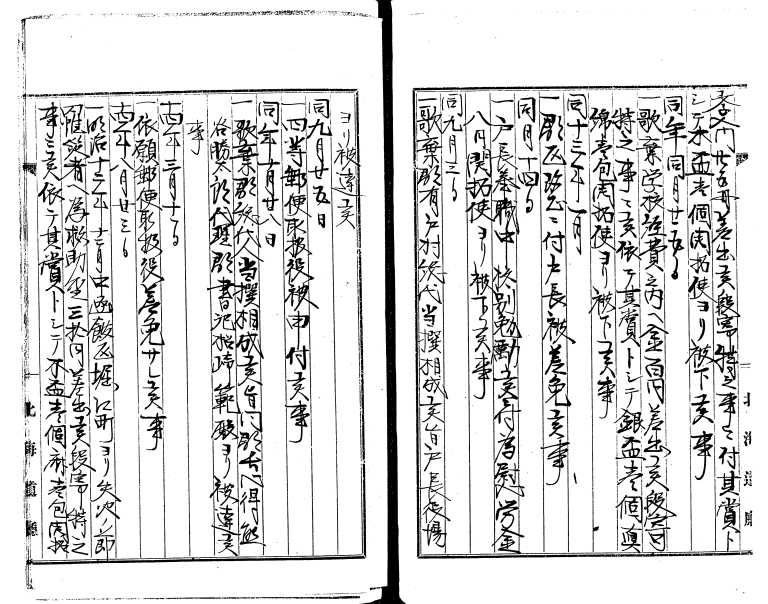 費ノ内廿五円差出候段寄特之事ニ付其賞ト
シテ木盃壱個開拓使ヨリ被下候事
同年同月廿五日
一歌棄学校経費之内ヘ金百円差出候段寄
特之事ニ候依テ其賞トシテ銀盃壱個真
綿壱包開拓使ヨリ被下候事
同十三年一月
一郡区改正ニ付戸長被差免候事
同月十四日
一戸長奉職中格別勉励候ニ付為慰労金
八円開拓使ヨリ被下候事
同九月三日
一歌棄郡有戸村総代当撰相成候旨戸長役場
ヨリ被達候
同九月廿五日
一四等郵便取扱役被申付候事
同年十月廿八日
一歌棄郡総代人当撰相成候旨同郡長心得熊
谷勝太郎代理郡書記
範
ヨリ被達候
事
十四年三月十日
一依願郵便取扱役差免サレ候事
十四年八月廿三日
一明治十三年十二月中函館区堀江町ヨリ失火ノ節
罹災者ヘ為救助金三拾円差出候段寄特之
事ニ候依テ其賞トシテ木盃壱個麻壱包開拓
北海道廳
北海道廳